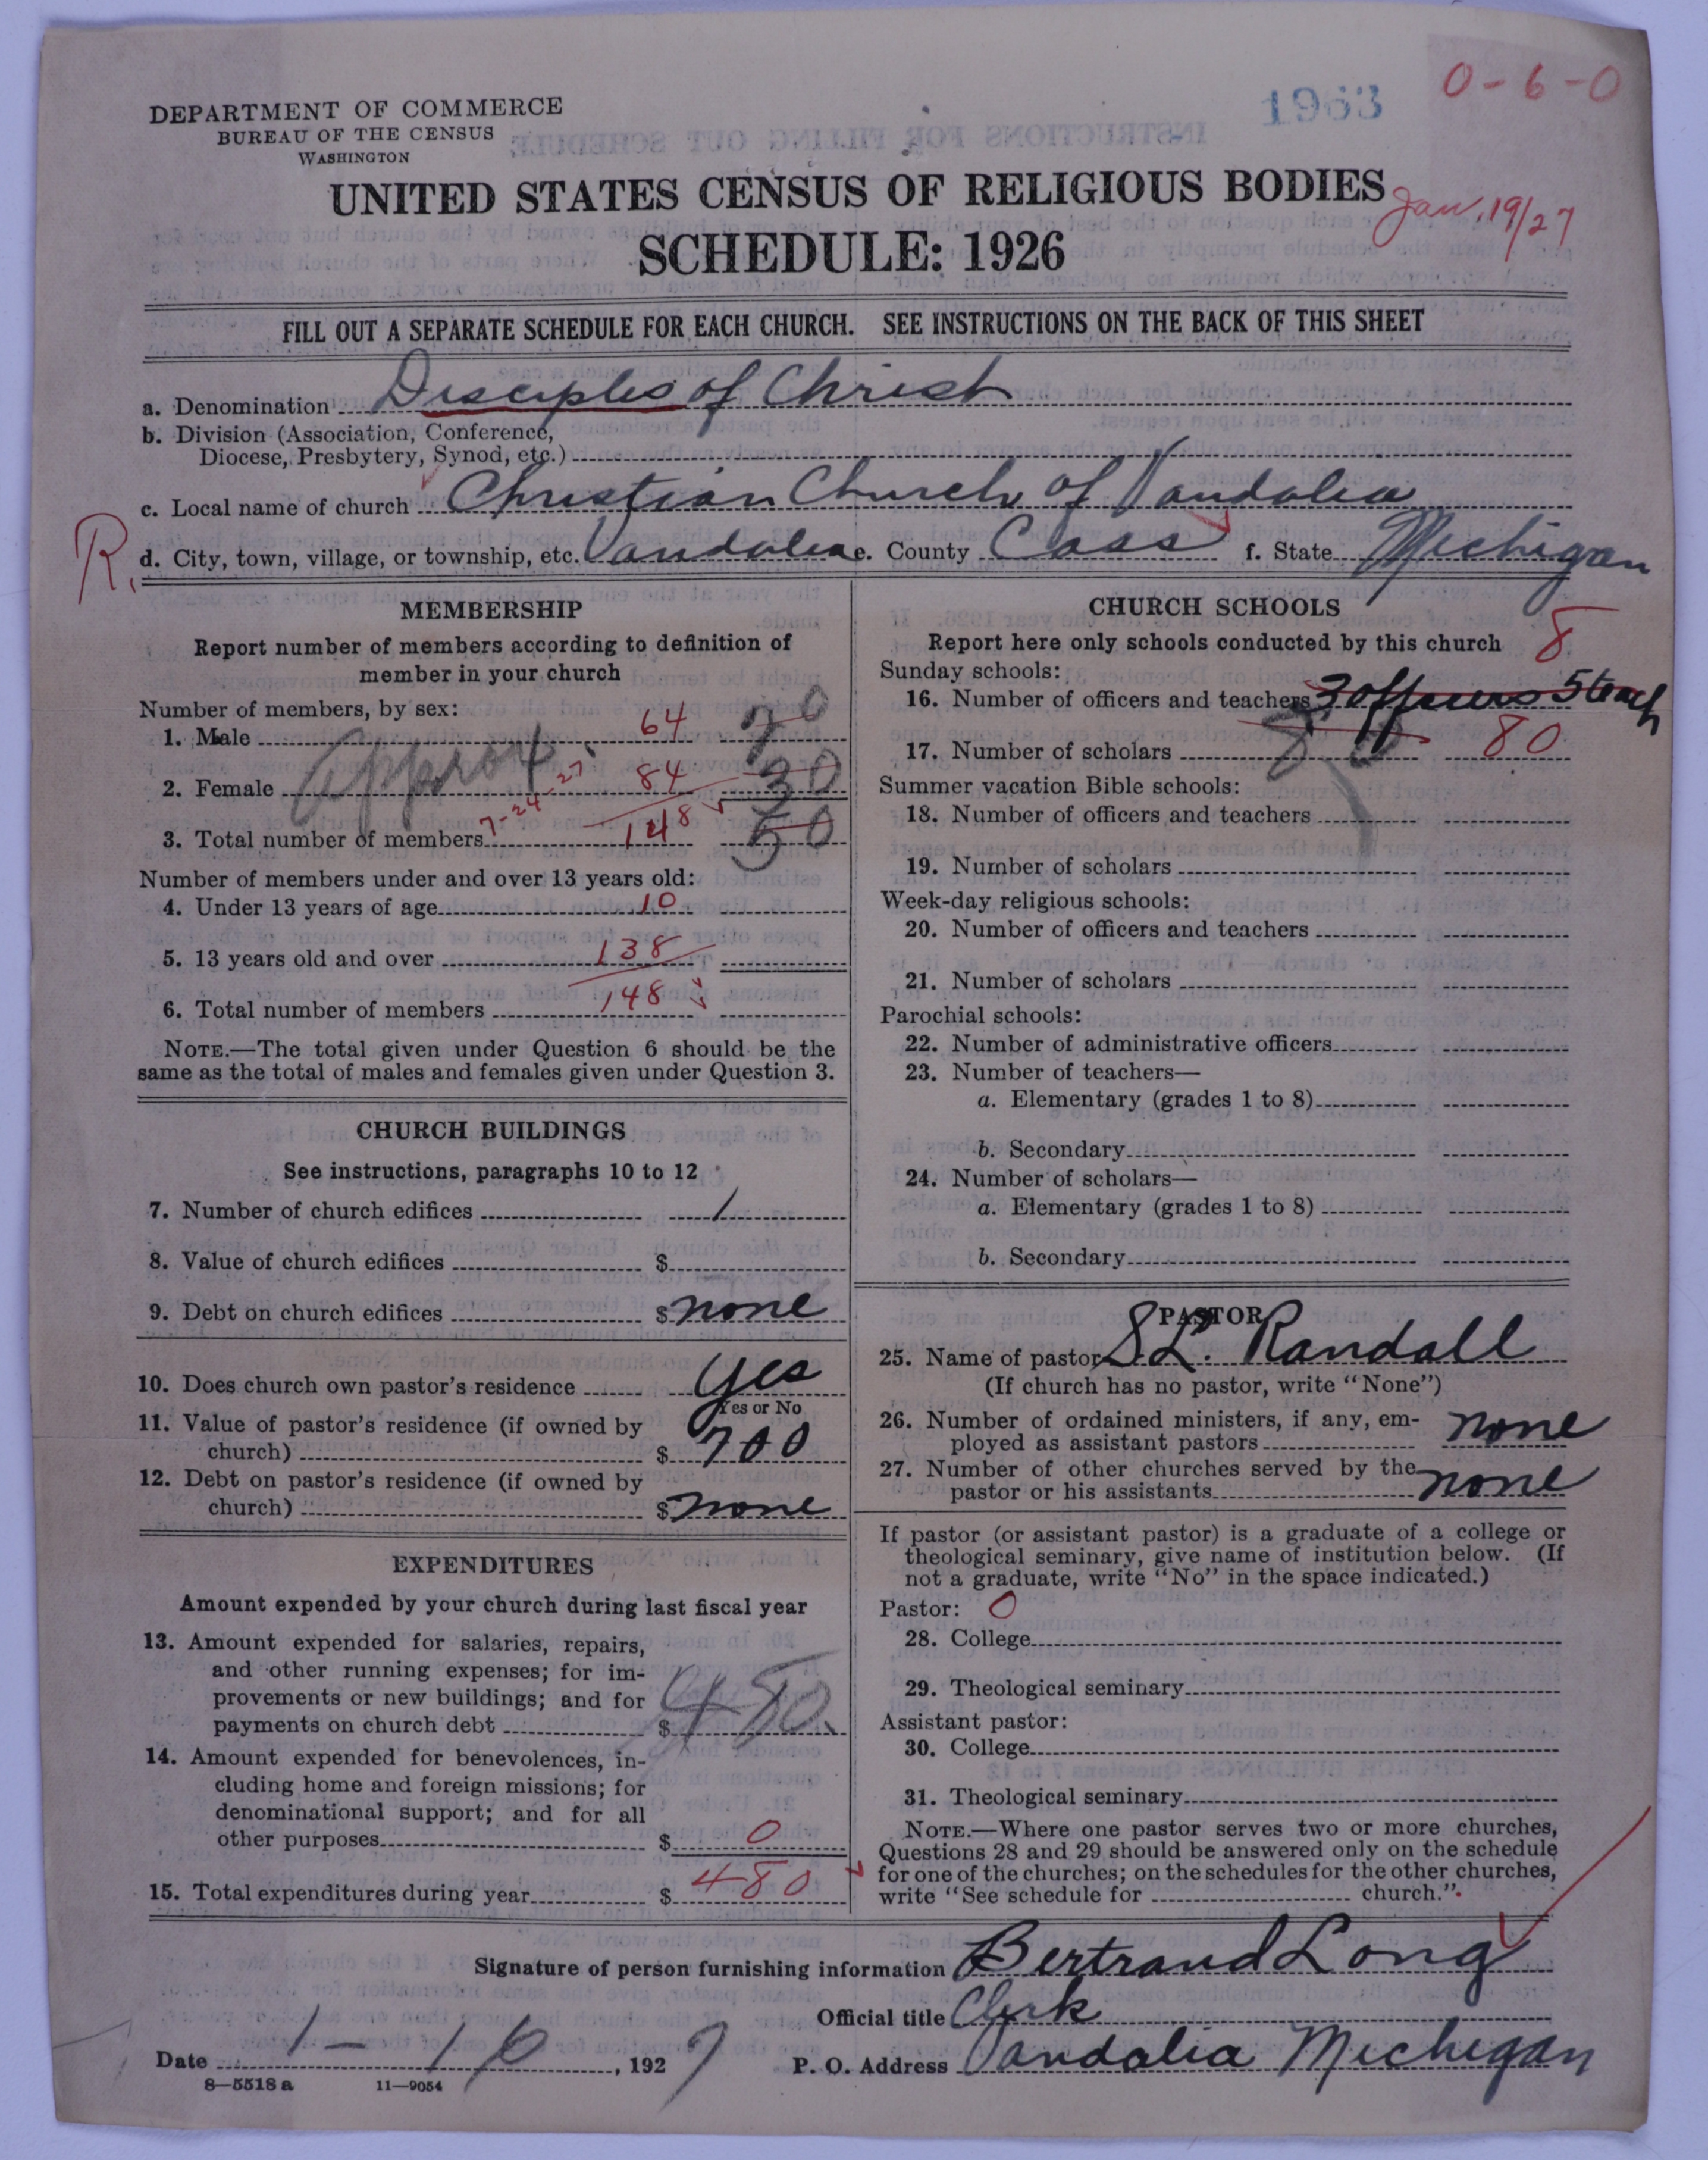 DEPARTMENT OF COMMERCE
BUREAU OF THE CENSUS
WASHINGTON
1963
0-6-0
UNITED STATES CENSUS OF RELIGIOUS BODIES
Jan. 19/27
SCHEDULE: 1926
FILL OUT A SEPARATE SCHEDULE FOR EACH CHURCH. SEE INSTRUCTIONS ON THE BACK OF THIS SHEET
a. Denomination Disciples of Christ
b. Division (Association, Conference,
Diocese, Presbytery, Synod, etc.)
c. Local name of church Christian Church of Vandalia
R.
d. City, town, village, or township, etc. Vandalia e. County Cass f. State Michigan
MEMBERSHIP
Report number of members according to definition of
member in your church
Number of members, by sex:
1. Male 64
2. Female Approx 84 30
3. Total number of members 7-24-27 148 50
Number of members under and over 13 years old:
4. Under 13 years of age 10
5. 13 years old and over 138
6. Total number of members 148
NOTE.—The total given under Question 6 should be the
same as the total of males and females given under Question 3.
CHURCH BUILDINGS
See instructions, paragraphs 10 to 12
7. Number of church edifices 1
8. Value of church edifices $
9. Debt on church edifices $ none
10. Does church own pastor's residence yes
Yes or No
11. Value of pastor's residence (if owned by
church) $ 700
12. Debt on pastor's residence (if owned by
church) $ none
EXPENDITURES
Amount expended by your church during last fiscal year
13. Amount expended for salaries, repairs,
and other running expenses; for im-
provements or new buildings; and for
payments on church debt $ 480.
14. Amount expended for benevolences, in-
cluding home and foreign missions; for
denominational support; and for all
other purposes $ 0
15. Total expenditures during year $ 480
CHURCH SCHOOLS
Report here only schools conducted by this church
8
Sunday schools:
16. Number of officers and teachers 3 officers 5 teach
17. Number of scholars 80 80
Summer vacation Bible schools:
18. Number of officers and teachers
19. Number of scholars
Week-day religious schools:
20. Number of officers and teachers
21. Number of scholars
Parochial schools:
22. Number of administrative officers
23. Number of teachers—
a. Elementary (grades 1 to 8)
b. Secondary
24. Number of scholars—
a. Elementary (grades 1 to 8)
b. Secondary
PASTOR
25. Name of pastor S.L. Randall
(If church has no pastor, write "None")
26. Number of ordained ministers, if any, em-
ployed as assistant pastors none
27. Number of other churches served by the
pastor or his assistants none
If pastor (or assistant pastor) is a graduate of a college or
theological seminary, give name of institution below. (If
not a graduate, write "No" in the space indicated.)
Pastor: 0
28. College
29. Theological seminary
Assistant pastor:
30. College
31. Theological seminary
NOTE.—Where one pastor serves two or more churches,
Questions 28 and 29 should be answered only on the schedule
for one of the churches; on the schedules for the other churches,
write "See schedule for church."
Signature of person furnishing information Bertrand Long
Official title Clerk
Date 1-16, 1927 P. O. Address Vandalia Michigan
8—5518 a 11—9054